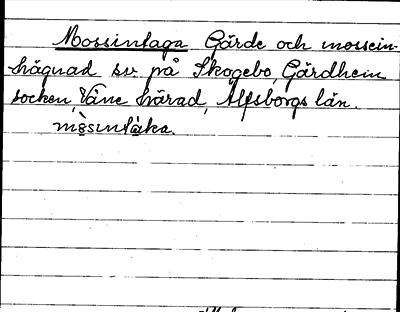 Mossintaga Gärde och mossein-
hägnad sv. på Skogebo, Gärdhem
socken, Väne härad, Älfsborgs län.
mòsintàka.